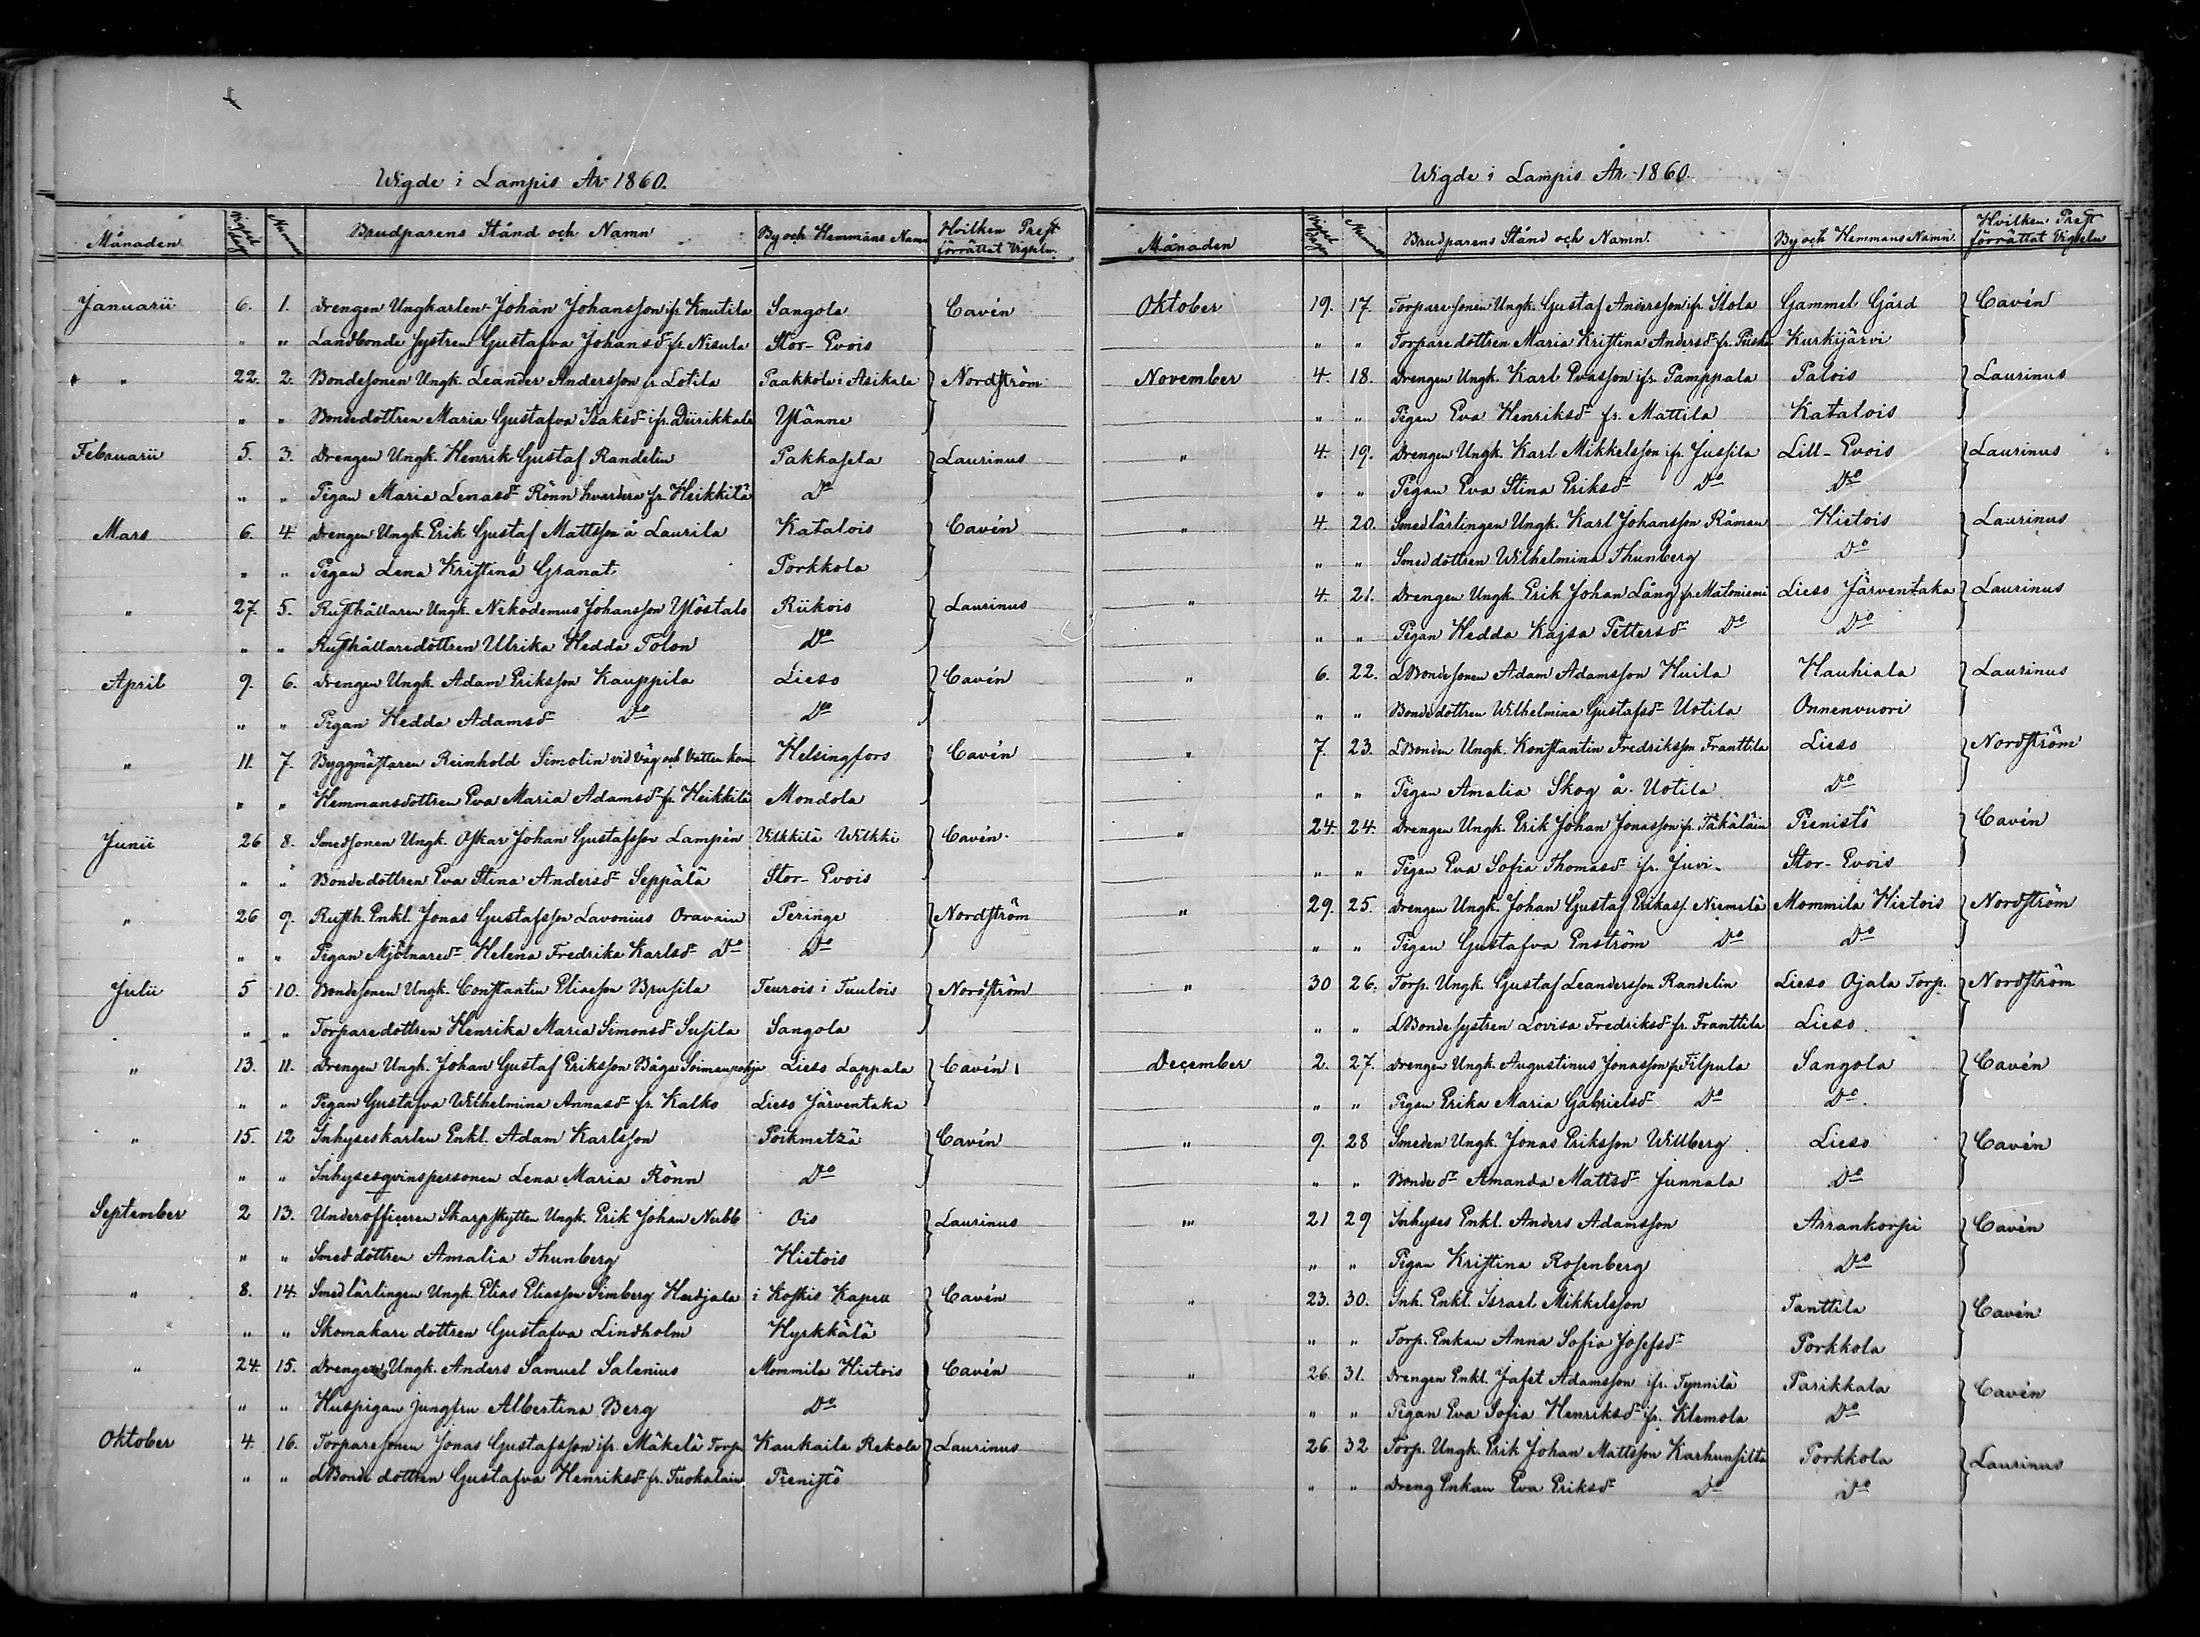 Wigde i Lampis År 1860.
Månaden Vigsel Dag Nummer Brudparens Stånd och Namn By och Hemmans Namn Hvilken Prest förrättat Vigseln.
Januarii 6. 1. Drengen Ungkarlen Johan Johansson ifr. Knutila Sangola } Cavén
" " Landbonde systren Gustafva Johansdr fr. Nisula Stor-Evois
" 22. 2. Bondesonen Ungk. Leander Andersson fr. Lotila Paakkola i Asikala } Nordström
" " Bondedottren Maria Gustafva Isaksdr ifr. Diirikkala Ylänne
Februarii 5. 3. Drengen Ungk. Henrik Gustaf Randelin Pakkasela } Laurinus
" " Pigan Maria Lenasdr Rönn hvardera fr. Heikkilä Do
Mars 6. 4. Drengen Ungk. Erik Gustaf Mattsson å Laurila Katalois } Cavén
" " Pigan Lena Kristina Granat Porkkola
" 27. 5. Rusthållaren Ungk. Nikodemus Johansson Ylöstalo Riikois } Laurinus
" " Rusthållaredottren Ulrika Hedda Tolon Do
April 9. 6. Drengen Ungk. Adam Eriksson Kauppila Lieso } Cavén
" " Pigan Hedda Adamsdr Do Do
" 11. 7. Byggmästaren Reinhold Simolin vid Väg och Vatten kom Helsingfors } Cavén
" " Hemmansdottren Eva Maria Adamsdr fr. Heikkilä Mondola
Junii 26 8. Smedsonen Ungk. Oskar Johan Gustafsson Lampén Vilkkilä Wilkki } Cavén
" " Bondedottren Eva Stina Andersdr Seppälä Stor-Evois
" 26 9. Rusth. Enkl. Jonas Gustafsson Lavonius Oravain Peringe } Nordström
" " Pigan Mjölnaredr Helena Fredrika Karlsdr Do Do
Julii 5 10. Bondesonen Ungk. Constantin Eliasson Brusila Teurois i Tuulois } Nordström
" " Torparedottren Henrika Maria Simonsdr Susila Sangola
" 13. 11. Drengen Ungk. Johan Gustaf Eriksson Båge Lieso Lappala } Cavén
" " Pigan Gustafva Wilhelmina Annasdr fr. Kalko Lieso Järventaka
" 15. 12 Inhyseskarlen Enkl. Adam Karlsson Poikmetzä } Cavén
" " Inhysesqvinspersonen Lena Maria Rönn Do
September 2 13. Underofficeren Skarpskytten Ungk. Erik Johan Nubb Ois } Laurinus
" " Smeddottren Amalia Thunberg Hietois
" 8. 14. Smedlärlingen Ungk. Elias Eliasson Simberg Huidjala i Koskis Kapell } Cavén
" " Skomakaredottren Gustafva Lindholm Kyrkkälä
" 24. 15. Drengen Ungk. Anders Samuel Salenius Mommila Hietois } Cavén
" " Huspigan jungfru Albertina Berg Do
Oktober 4. 16. Torparesonen Jonas Gustafsson ifr. Mäkelä Torp Kaukaila Rekola } Laurinus
" " LBonde dottren Gustafva Henriksdr fr. Tuokalain Pienistö
Wigde i Lampis År 1860.
Månaden Vigsel Dagen Nummer Brudparens Stånd och Namn. By och Hemmans Namn. Hvilken Prest förrättat Vigseln
Oktober 19. 17. Torparesonen Ungk. Gustaf Andersson ifr. Stola Gammel Gård } Cavén
" " Torparedottren Maria Kristina Andersdr fr. Piiska Kurkijärvi
November 4. 18. Drengen Ungk. Karl Evasson ifr. Pamppala Palois } Laurinus
" " Pigan Eva Henriksdr fr. Mattila Katalois
" 4. 19. Drengen Ungk. Karl Mikkelsson ifr. Jussila Lill-Evois } Laurinus
" " Pigan Eva Stina Eriksdr Do Do
" 4. 20. Smedlärlingen Ungk. Karl Johansson Råman Hietois } Laurinus
" " Smeddottren Wilhelmina Thunberg Do
" 4. 21. Drengen Ungk. Erik Johan Lång fr. Matoniemi Lieso Järventaka } Laurinus
" " Pigan Hedda Kajsa Pettersdr Do Do
" 6. 22. LBondesonen Adam Adamsson Huila Hauhiala } Laurinus
" " Bondedottren Wilhelmina Gustafsdr Uotila Onnenvuori
" 7. 23. LBonden Ungk. Konstantin Fredriksson Franttila Lieso } Nordström
" " Pigan Amalia Skog å Uotila Do
" 24. 24. Drengen Ungk. Erik Johan Jonasson fr. Täkäläin Pienistö } Cavén
" " Pigan Eva Sofia Thomasdr ifr. Juvi Stor-Evois
" 29. 25. Drengen Ungk. Johan Gustaf Erikass. Niemelä Mommila Hietois } Nordström
" " Pigan Gustafva Enström Do Do
" 30 26. Torp. Ungk. Gustaf Leandersson Randelin Lieso Ojala Torp. } Nordström
" " LBonde systren Lovisa Fredriksdr fr. Franttila Lieso
December 2. 27. Drengen Ungk. Augustinus Jonasson fr. Filpula Sangola } Cavén
" " Pigan Erika Maria Gabrielsdr Do Do
" 9. 28 Smeden Ungk. Jonas Eriksson Willberg Lieso } Cavén
" " Bondedr Amanda Mattsdr Junnala Do
" 21 29 Inhyses Enkl. Anders Adamsson Arrankorpi } Cavén
" " Pigan Kristina Rosenberg Do
" 23. 30. Inh. Enkl. Israel Mikkelsson Tanttila } Cavén
" " Torp. Enkan Anna Sofia Josefsdr Porkkola
" 26. 31. Drengen Enkl. Jafet Adamsson ifr. Tynnilä Parikkala } Cavén
" " Pigan Eva Sofia Henriksdr ifr. Klemola Do
26. 32 Torp. Ungk. Erik Johan Mattsson Karhunsilta Porkkola } Laurinus
" " Dreng Enkan Eva Eriksdr Do Do